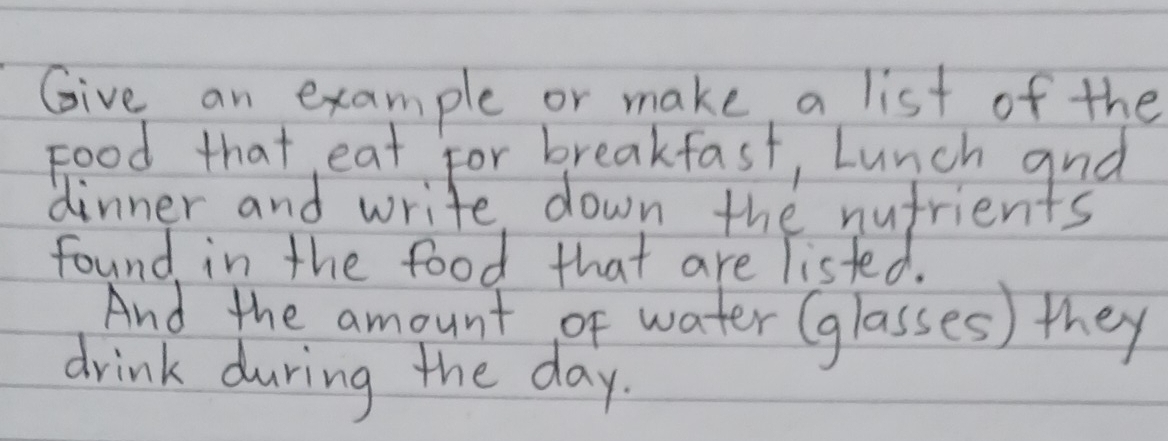 Give an example or make a list of the
Food that eat For breakfast, Lunch and
dinner and write down the nutrients
found in the food that are listed.
And the amount of water (glasses) they
drink during the day.